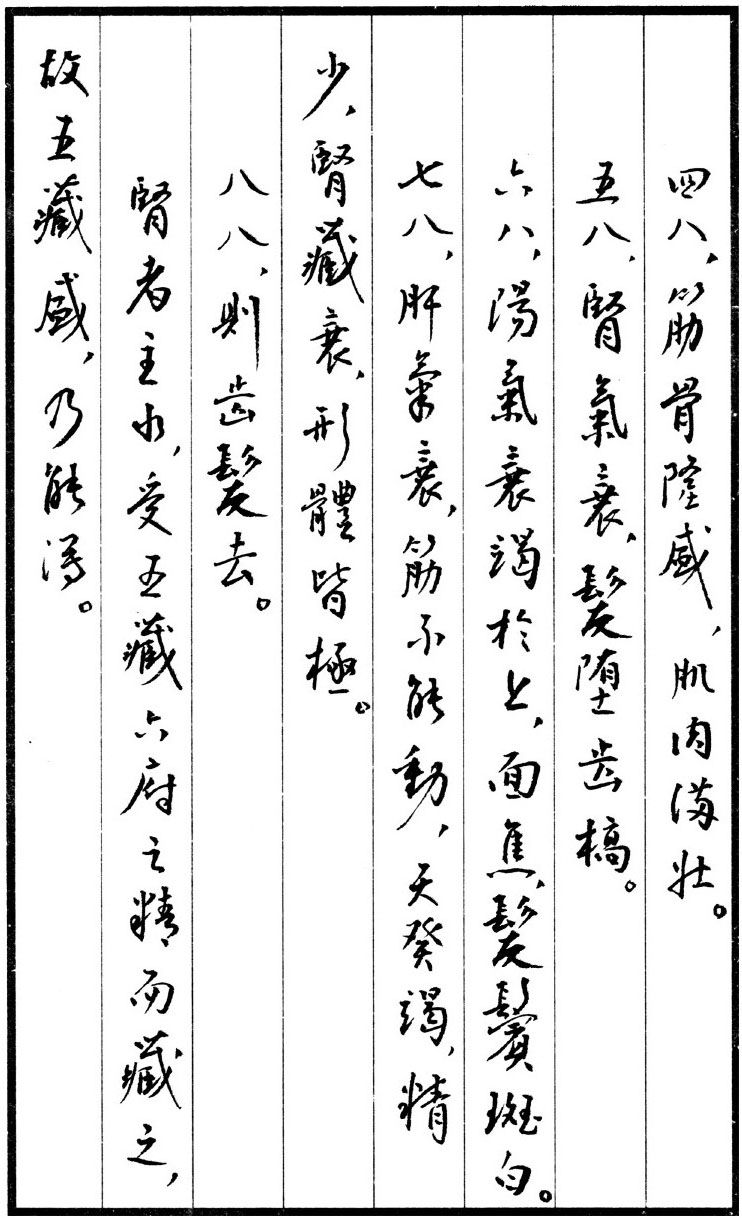 四八，筋骨隆盛，肌肉滿壯。
五八，腎氣衰，髮堕齿槁。
六八，陽氣衰竭於上，面焦，髮鬢斑白。
七八，肝氣衰，筋不能動，天癸竭，精
少，腎藏衰，形體皆極。
八八，則齿髮去。
腎者主水，受五藏六府之精而藏之，
故五藏盛，乃能瀉。